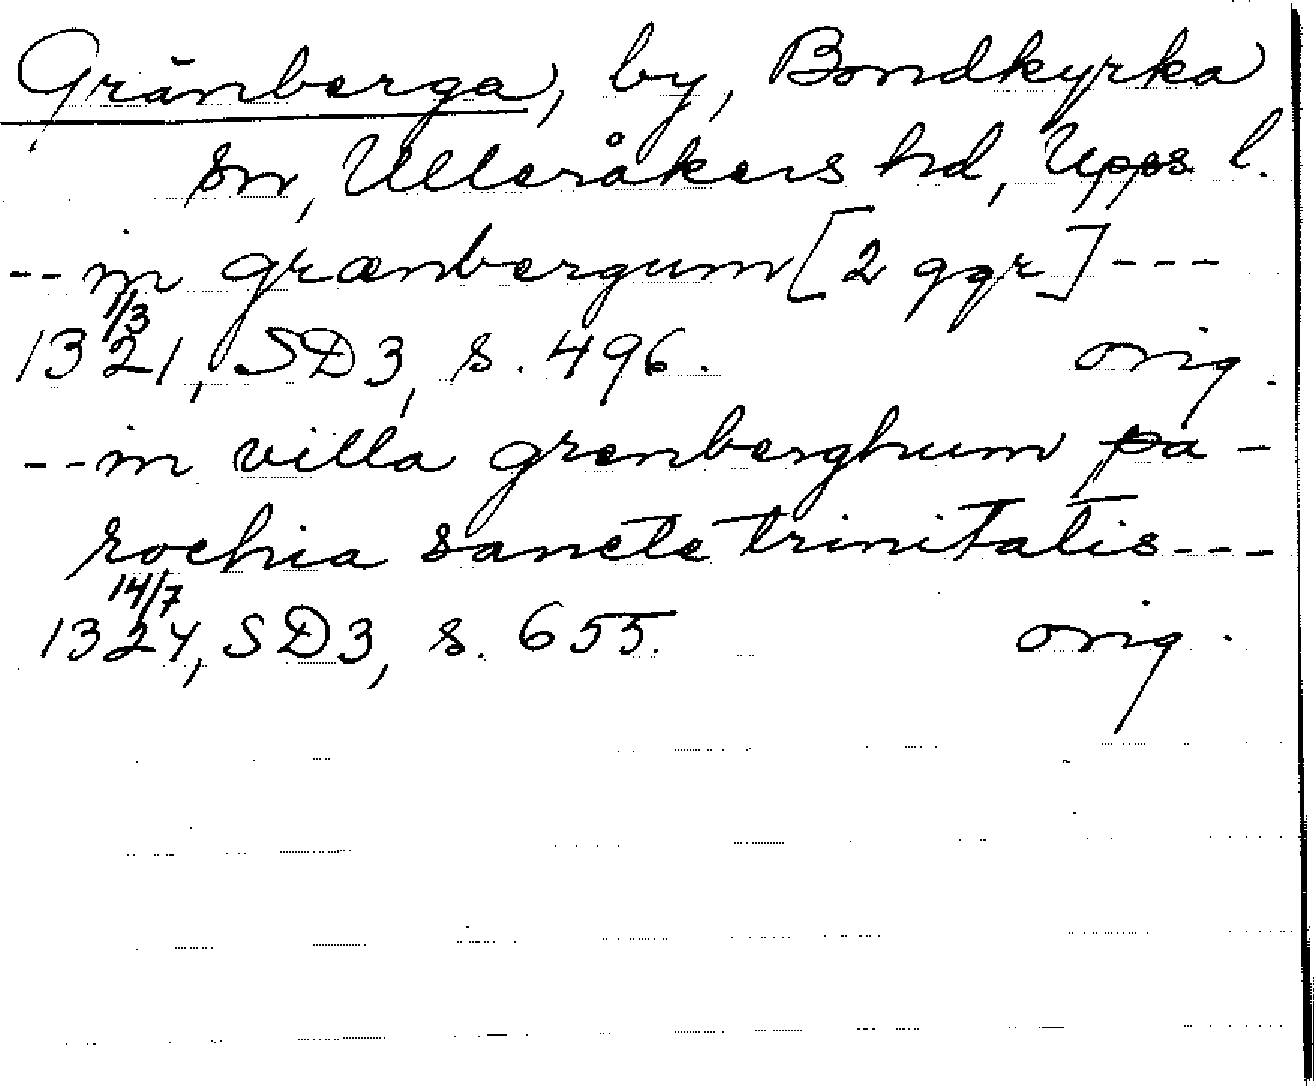 Gränberga, by, Bondkyrka
sn, Ulleråkers hd, Upps l.
-- in grænbergum [2 ggr] ---
1/3
1321, SD3, s. 496. orig.
-- in villa grenberghum pa-
rochia sancte trinitatis ---
14/7
1324, SD3, s. 655. orig.